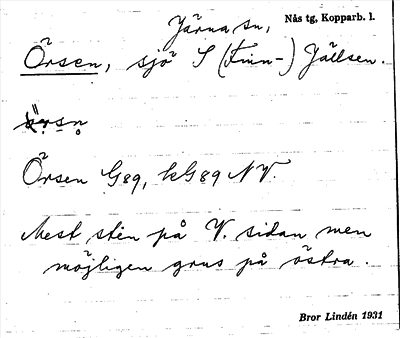 Järna sn, Nås tg, Kopparb. l.
Örsen, sjö S (Finn-) Gällsen.
Örsen G89, kG89 NV.
Mest sten på V. sidan men
möjligen grus på östra.
Bror Lindén 1931